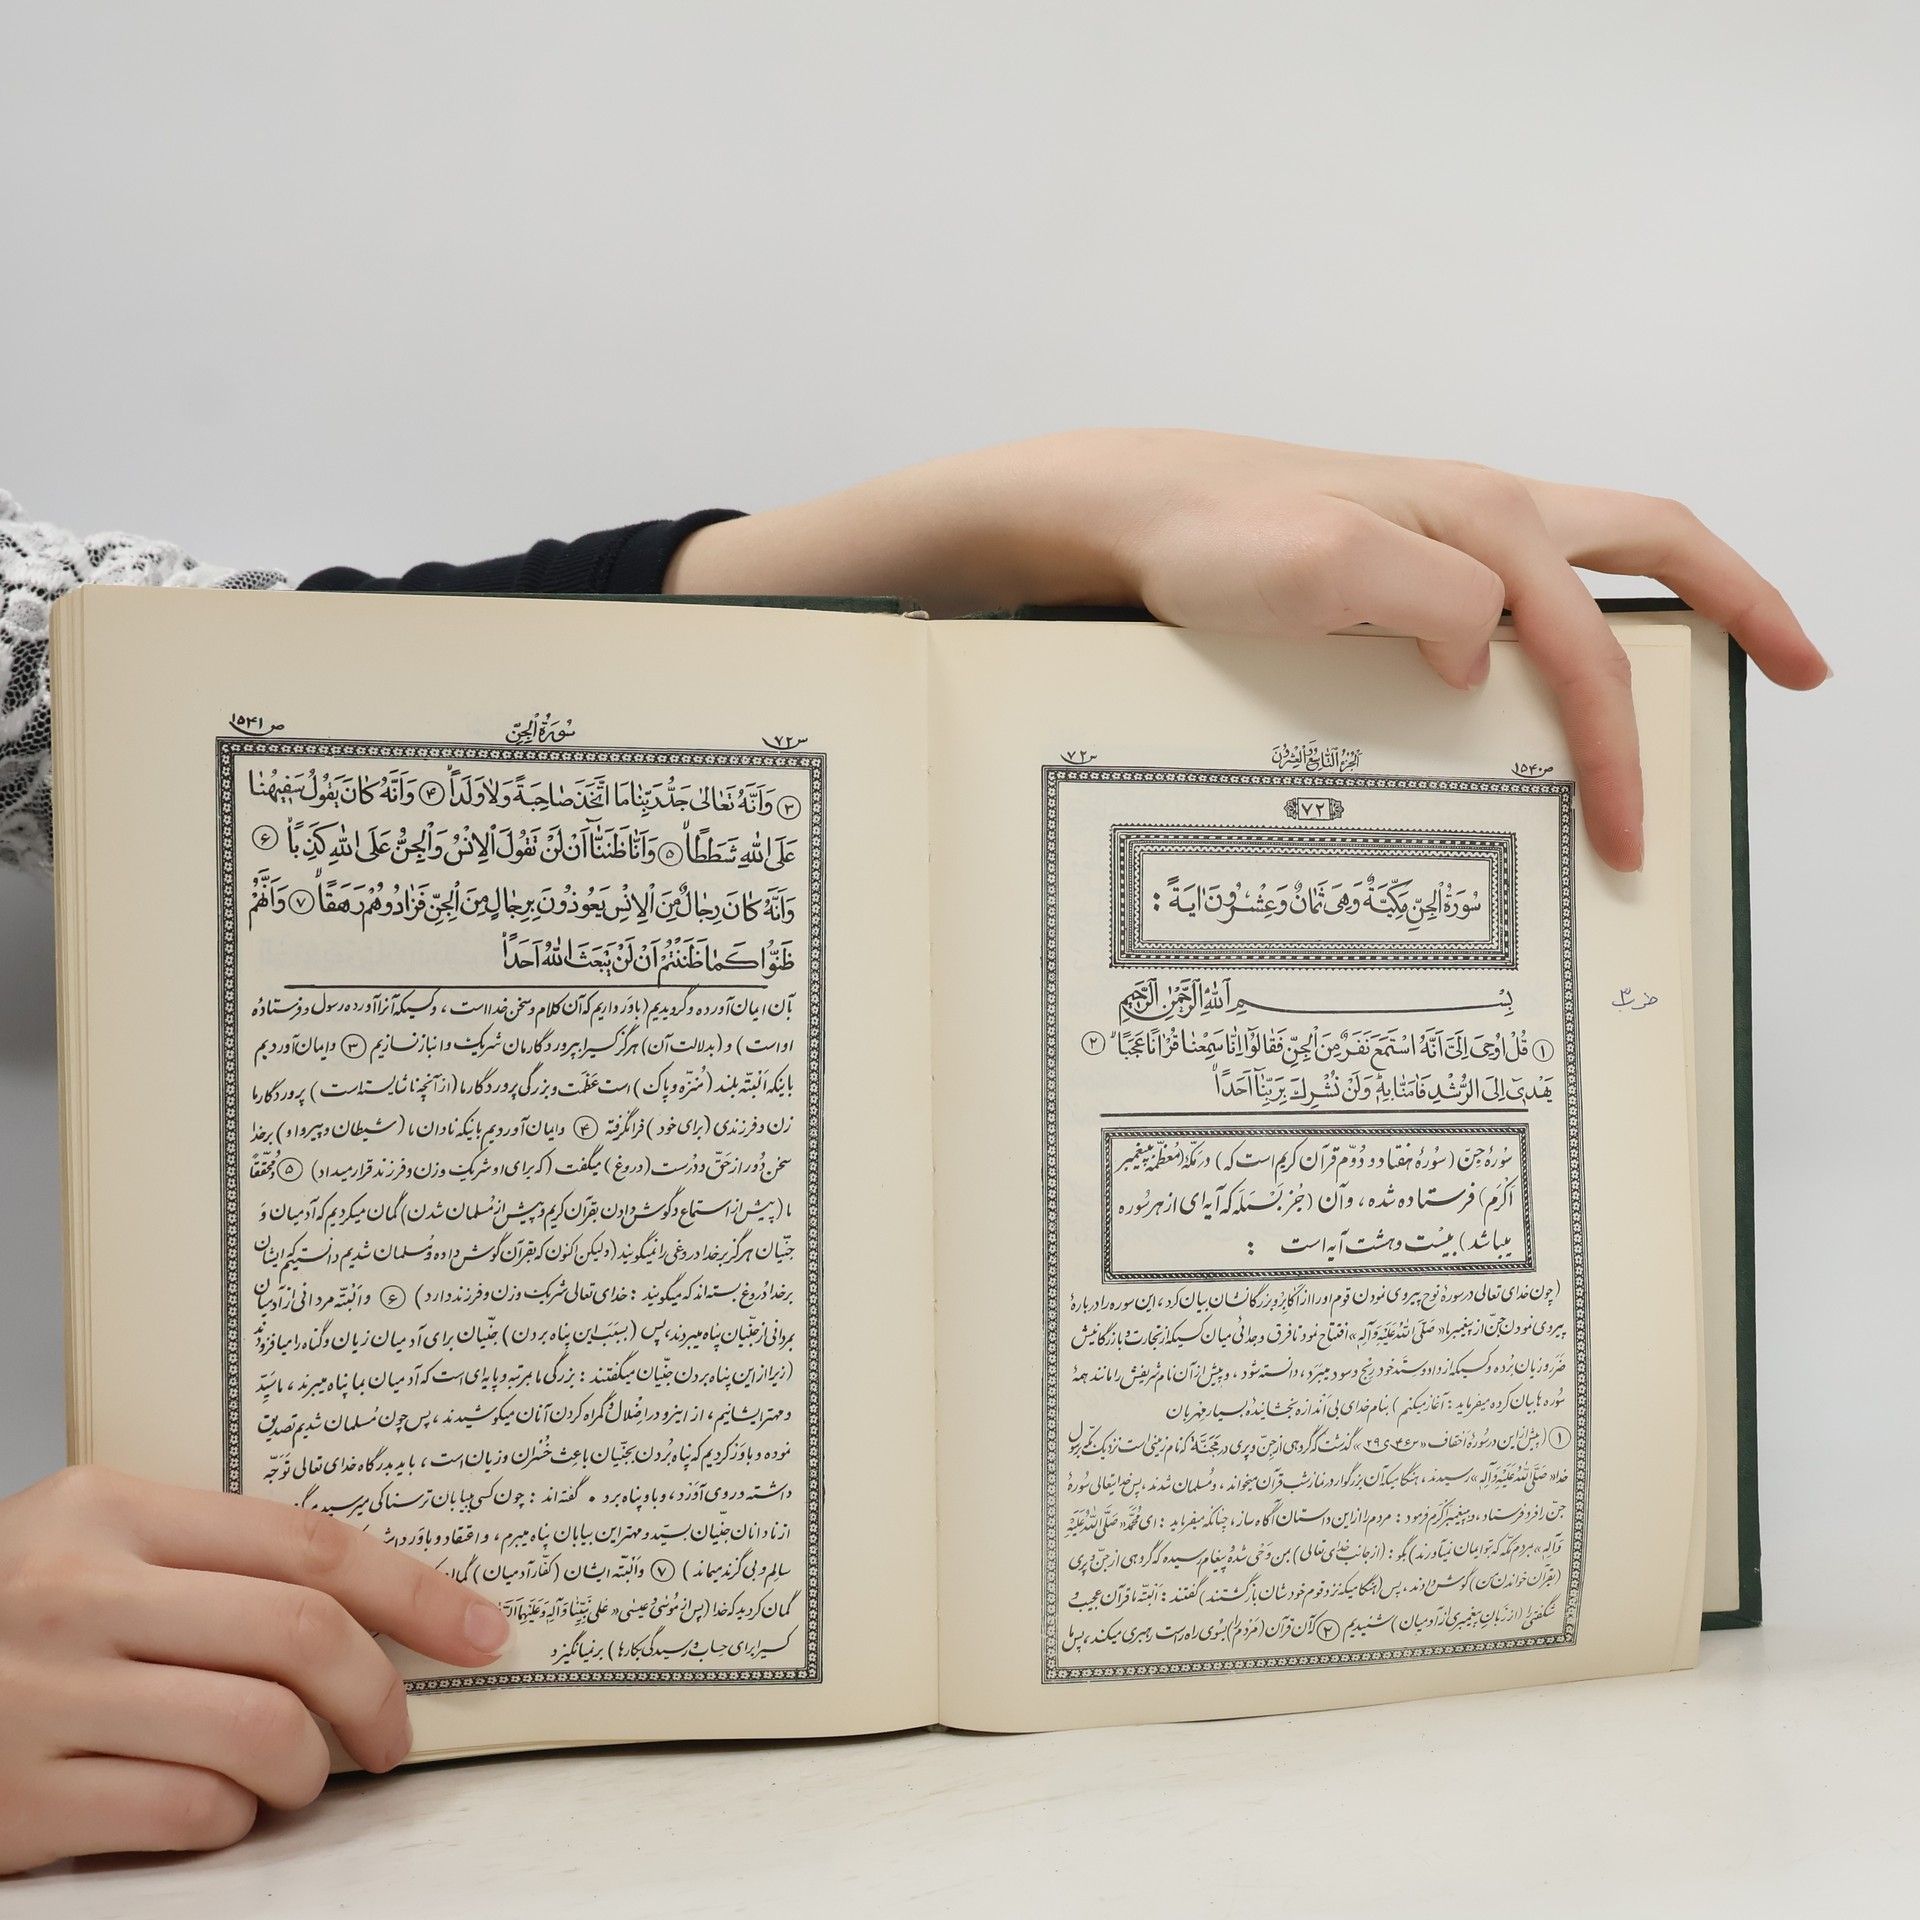 ص١٥۴٠ الجزء التاسع والعشرون س٧٢
٧٢
سُورَةُ الْجِنِّ مَكِّيَّةٌ وَهِىَ ثَمَانٌ وَعِشْرُونَ ايَةً :
بِسْمِ اللَّهِ الرَّحْمٰنِ الرَّحِيمِ
١ قُلْ اُوحِىَ اِلَىَّ اَنَّهُ اسْتَمَعَ نَفَرٌ مِنَ الْجِنِّ فَقَالُوٓا اِنَّا سَمِعْنَا قُرْاٰنًا عَجَبًا ٢
يَهْدِىٓ اِلَى الرُّشْدِ فَاٰمَنَّا بِهِ وَلَنْ نُشْرِكَ بِرَبِّنَآ اَحَدًا
سورهٔ جنّ (سورهٔ هفتاد و دوّم قرآن كريم است كه) در مكّهٔ (معظّمه بپيغمبر
اكرم) فرستاده شده ، و آن (جز بسمله كه آيه‌اى از هر سوره
ميباشد) بيست و هشت آيه است :
(چون خداى تعالى در سورهٔ نوح پيروى نمودن قوم او را از اكابر و بزرگانشان بيان كرد ، اين سوره را دربارهٔ
پيروى نمودن جنّ از پيغمبر ما «صَلَّى اللهُ عَلَيْهِ وَآلِهِ» افتتاح نمود تا فرق و جدائى ميان كسيكه از تجارت و بازرگانيش
ضرر و زيان برده و كسيكه از داد و ستد خود رنج و سود ميبرد ، دانسته شود ، و پيش از آن نام شريفش را مانند همهٔ
سوره‌ها بيان كرده ميفرمايد : آغاز ميكنم) بنام خداى بى‌اندازه بخشايندهٔ بسيار مهربان
١ (پيش از اين در سورهٔ احقاف «س۴۶ى٢٩» گذشت كه گروهى از جنّ و پرى در مَجَنَّة كه نام زمينى است نزديك مكّه برسول
خدا «صَلَّى اللهُ عَلَيْهِ وَآلِهِ» رسيدند ، هنگاميكه آن بزرگوار در نماز شب قرآن ميخواند ، و مسلمان شدند ، پس خدايتعالى سورهٔ
جنّ را فرو فرستاد ، و بپيغمبر اكرم فرمود : مردم را از اين داستان آگاه ساز ، چنانكه ميفرمايد : اى محمّد «صَلَّى اللهُ عَلَيْهِ
وَآلِهِ» بمردم مكّه كه بتو ايمان نياورند) بگو : (از جانب خداى تعالى) بمن وحى شده و پيغام رسيده كه گروهى از جنّ و پرى
(بقرآن خواندن من) گوش دادند ، پس (هنگاميكه نزد قوم خودشان بازگشتند) گفتند : البتّه ما قرآن عجيب و
شگفتى را (از زبان پيغمبرى از آدميان) شنيديم ٢ كه آن قرآن (مردم را) بسوى راه راست رهبرى ميكند ، پس ما
س٧٢ سُورَةُ الْجِنِّ ص١٥۴١
٣ وَاَنَّهُ تَعَالىٰ جَدُّ رَبِّنَا مَا اتَّخَذَ صَاحِبَةً وَلَا وَلَدًا ۴ وَاَنَّهُ كَانَ يَقُولُ سَفِيهُنَا
عَلَى اللهِ شَطَطًا ۵ وَاَنَّا ظَنَنَّآ اَنْ لَنْ تَقُولَ الْاِنْسُ وَالْجِنُّ عَلَى اللهِ كَذِبًا ۶
وَاَنَّهُ كَانَ رِجَالٌ مِنَ الْاِنْسِ يَعُوذُونَ بِرِجَالٍ مِنَ الْجِنِّ فَزَادُوهُمْ رَهَقًا ٧ وَاَنَّهُمْ
ظَنُّوا كَمَا ظَنَنْتُمْ اَنْ لَنْ يَبْعَثَ اللهُ اَحَدًا
بآن ايمان آورده و گرويديم (باور داريم كه آن كلام و سخن خدا است ، و كسيكه آنرا آورده رسول و فرستادهٔ
او است) و (بدلالت آن) هرگز كسيرا بپروردگارمان شريك و انباز نسازيم ٣ و ايمان آورديم
باينكه البتّه بلند (منزّه و پاك) است عظمت و بزرگى پروردگار ما (از آنچه ناشايسته است) پروردگار ما
زن و فرزندى (براى خود) فرا نگرفته ۴ و ايمان آورديم باينكه نادان ما (شيطان و پيرو او) بر خدا
سخن دور از حقّ و درست (دروغ) ميگفت (كه براى او شريك و زن و فرزند قرار ميداد) ۵ و محقّقاً
ما (پيش از استماع و گوش دادن بقرآن كريم و پيش از مسلمان شدن) گمان ميكرديم كه آدميان و
جنّيان هرگز بر خدا دروغى را نميگويند (وليكن اكنون كه بقرآن گوش داده و مسلمان شديم دانستيم كه ايشان
بر خدا دروغ بسته‌اند كه ميگويند : خداى تعالى شريك و زن و فرزند دارد) ۶ و البتّه مردانى از آدميان
بمردانى از جنّيان پناه ميبردند ، پس (بسبب اين پناه بردن) جنّيان براى آدميان زيان و گناه را ميافزودند
(زيرا از اين پناه بردن جنّيان ميگفتند : بزرگى ما بمرتبه و پايه‌اى است كه آدميان بما پناه ميبرند ، ما سيّد
و مهتر ايشانيم ، از اينرو در اضلال و گمراه كردن آنان ميكوشيدند ، پس چون مسلمان شديم تصديق
نموده و باور كرديم كه پناه بردن بجنّيان باعث خسران و زيان است ، بايد بدرگاه خداى تعالى توجّه
داشته و روى آورد ، و باو پناه برد . گفته‌اند : چون كسى ببيابان ترسناكى ميرسيد
از نادانان جنّيان بسيّد و مهتر اين بيابان پناه ميبرم ، و اعتقاد و باور
سالم و بى‌گزند ميماند) ٧ و البتّه ايشان (كفّار آدميان)
گمان كرديد كه خدا (پس از موسى و عيسى «على نبيّنا وآله وعليهما
كسيرا براى حساب و رسيدگى بكارها) بر نميانگيزد